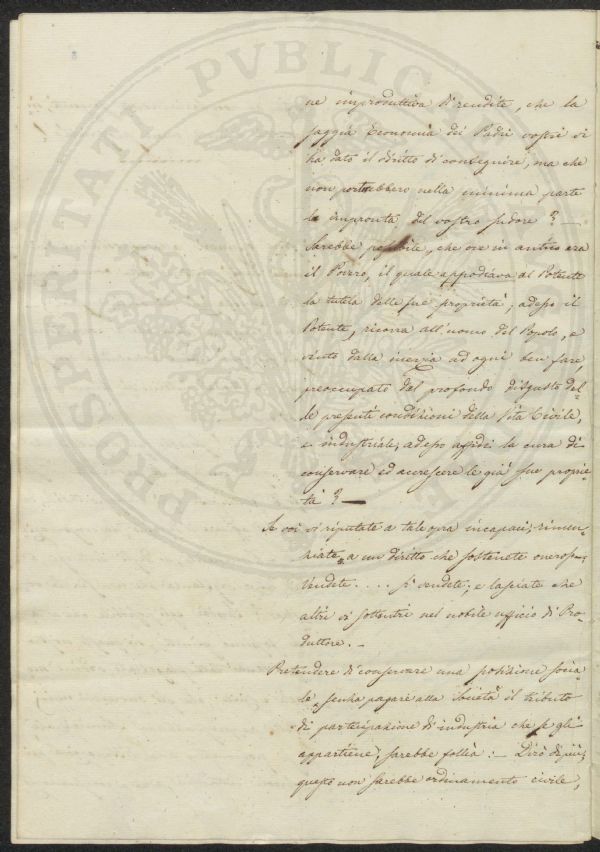 ne improduttiva di rendite, che la
saggia Economia dei Padri vostri vi
ha dato il diritto di conseguire, ma che
non porterebbero nella minima parte
la impronta del vostro sudore? —
Sarebbe possibile, che ove in antico era
il Povero, il quale appodiava al Potente
la tutela delle sue proprietà; adesso il
Potente, ricorra all'uomo del Popolo, e
vinto dalla inerzia ad ogni ben fare,
preoccupato dal profondo disgusto del=
le presenti condizioni della Vita Civile,
e industriale; adesso affidi la cura di
conservare ed accrescere le già sue proprie=
tà? —
Se voi vi riputate a tale opra incapaci; rinun=
ziate a un diritto che sostenete oneroso;
Vendete.... sì vendete; e lasciate che
altri vi sottentri nel nobile ufficio di Pro=
duttore. —
Pretendere di conservare una posizione socia=
le, senza pagare alla società il tributo
di partecipazione di industria che se gli
appartiene; sarebbe follia: — Dirò di più;
questo non sarebbe ordinamento civile,
PROSPERITATI PVBLICAE